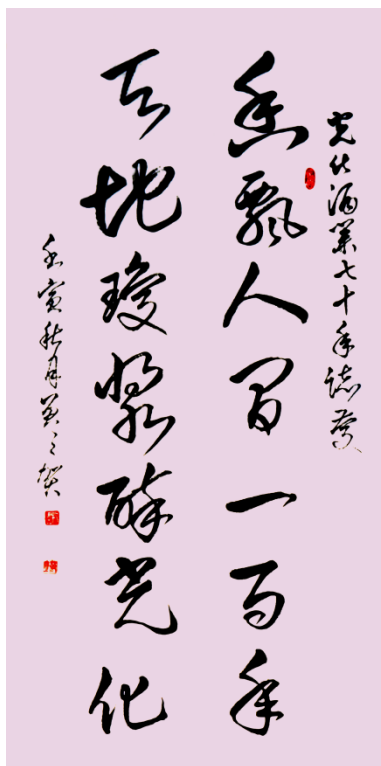 光化酒業七十年誌慶
香飄人間一百年
天地瓊漿醉光化
壬寅秋月賀